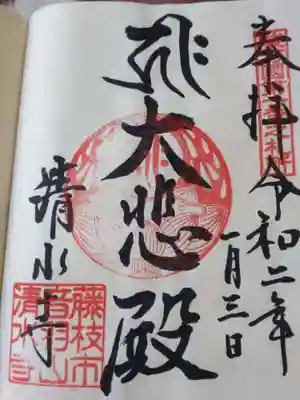 奉拝 令和二年
一月三日
大悲殿
清水寺
藤枝市
音羽山
清水寺